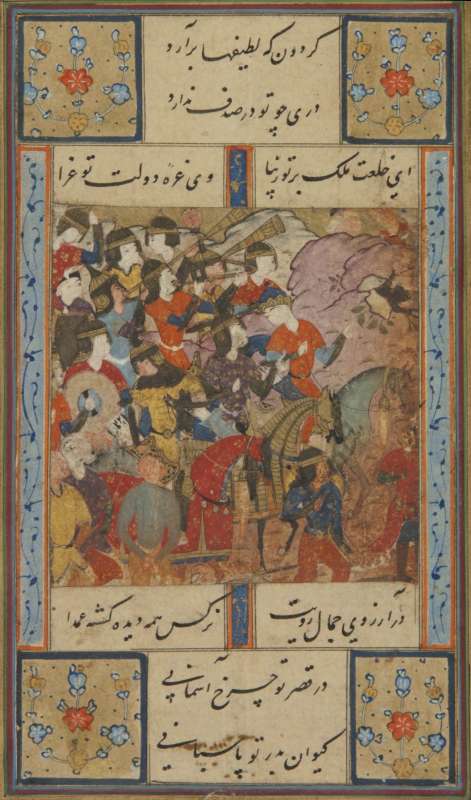 گردون که لطیفها برآرد
دری چو تو در صدف ندارد
ای خلعت ملک بر تو زیبا
وی غره دولت تو غرا
در آرزوی جمال رویت
نرگس همه دیده گشته عمدا
در قصر تو چرخ آسمانی
کیوان بدر تو پاسبانی